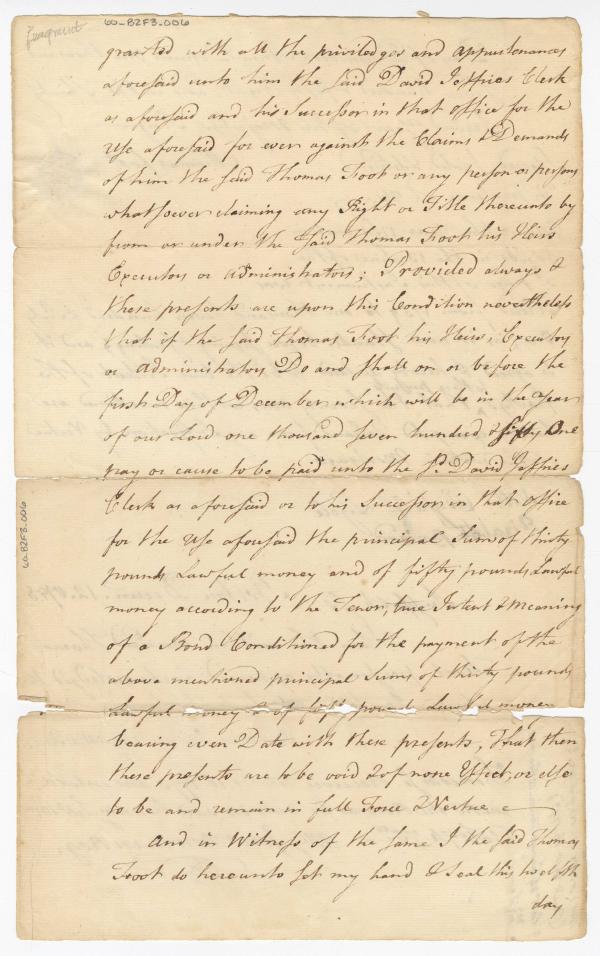 fragment
60-B2F3.006
granted with all the priviledges and appurtenances
aforesaid unto him the said David Jeffries Clerk
as aforesaid and his Successor in that office for the
Use aforesaid for ever against the Claims & Demands
of him the said Thomas Foot or any person or persons
whatsoever claiming any Right or Title thereunto by
from or under the said Thomas Foot his Heirs
Executors or administrators; Provided always &
these presents are upon this Condition nevertheless
that if the said Thomas Foot his Heirs, Executors
or administrators Do and shall on or before the
first Day of December which will be in the Year
of our Lord one thousand seven hundred & fifty One
pay or cause to be paid unto the sd. David Jeffries
Clerk as aforesaid or to his Successor in that office
for the Use aforesaid the principal Sums of thirty
pounds Lawful money and of fifty pounds Lawful
money according to the Tenor, true Intent & Meaning
of a Bond Conditioned for the payment of the
above mentioned principal Sums of thirty pounds
Lawful money & of fifty pounds Lawful money
bearing even Date with these presents, That then
these presents are to be void & of none Effect, or else
to be and remain in full Force & Vertue
And in Witness of the same I the said Thomas
Foot do hereunto set my hand & Seal this twelfth
day
60-B2F3.006